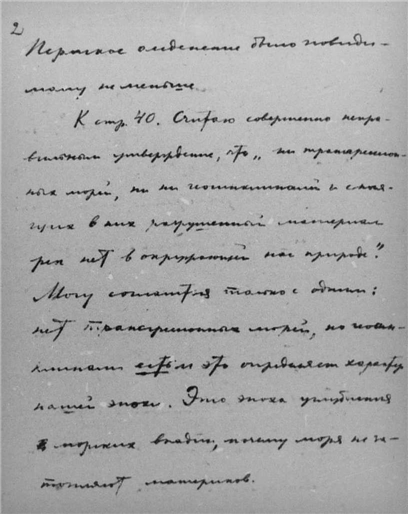 2
Пермское оледенение было повиди-
мому не меньше.
К стр. 40. Считаю совершенно непра-
вильным утверждение, что „ни трансгрессион-
ных морей, ни ни геосинклиналей и
в них разрушенный материал
рек нет в окружающей нас природе".
Могу согласиться только с одним:
нет трансгрессионных морей, но геосин-
клинали есть и это определяет характер
нашей эпохи. Это эпоха углубления
морских впадин, почему моря не за-
топляют материков.